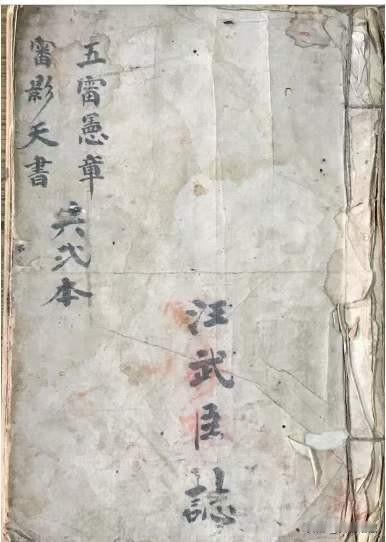 五雷憲章
雷影天書
共弍本
汪武臣誌